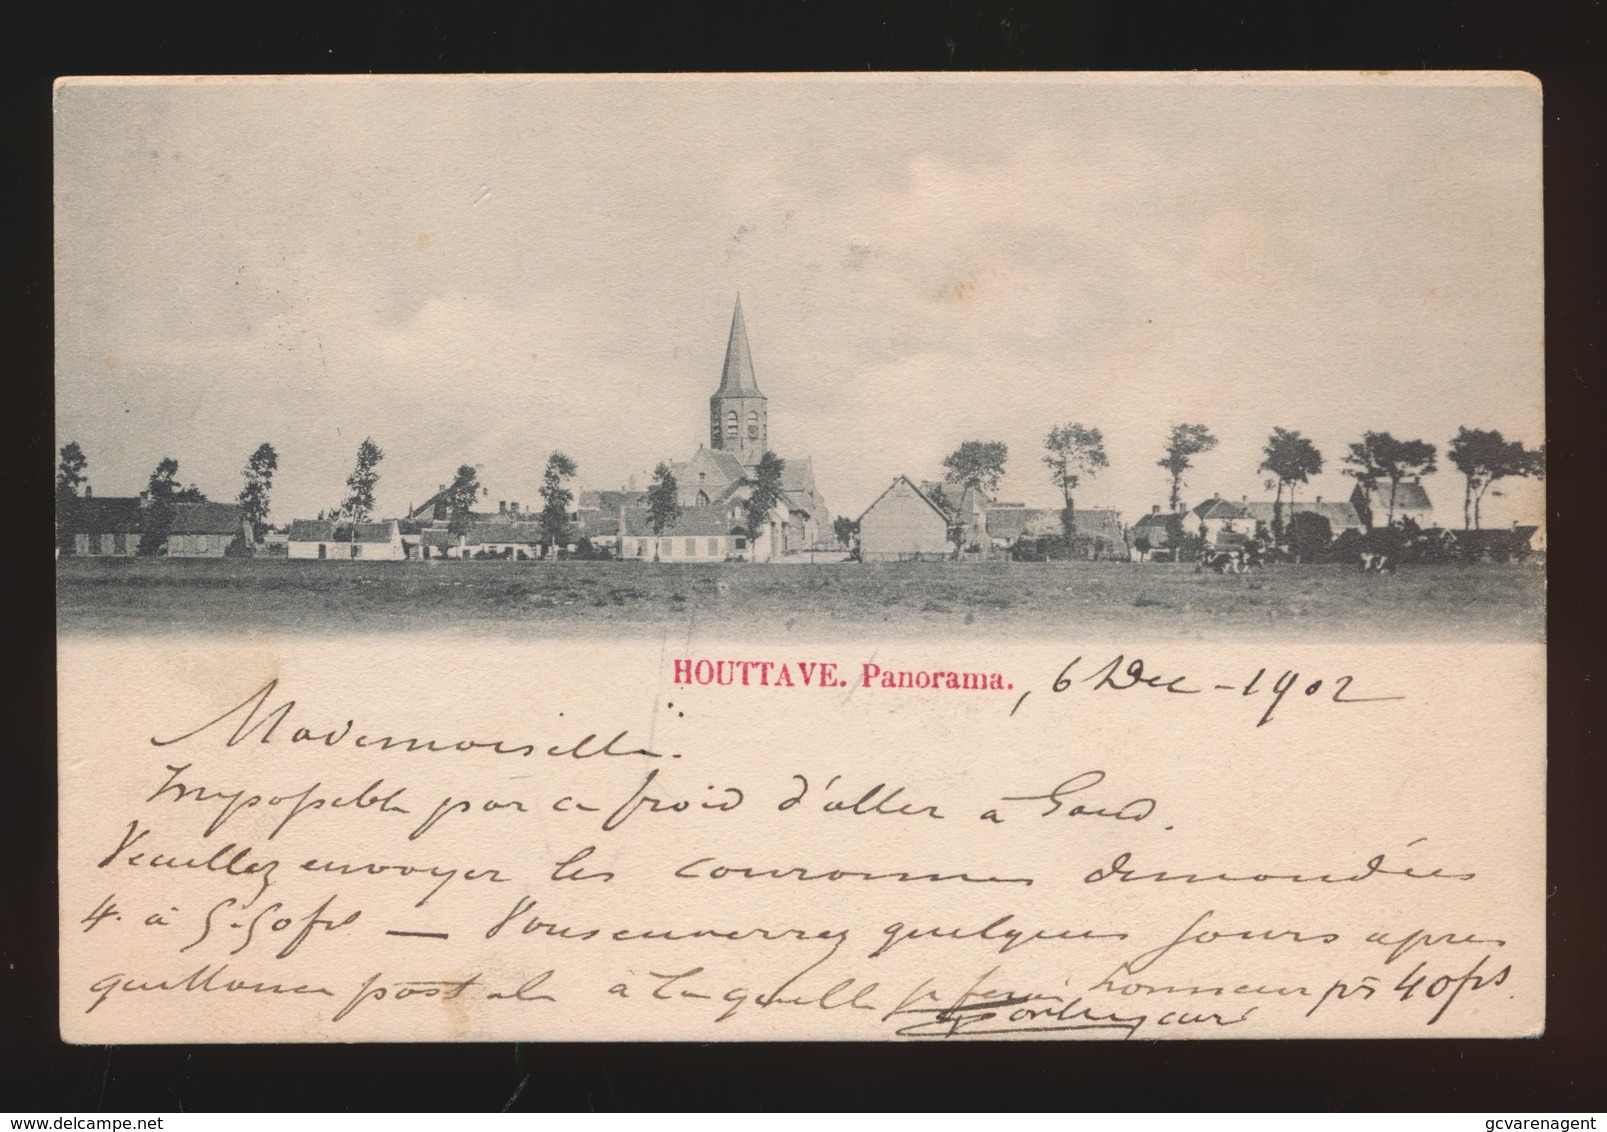 HOUTTAVE. Panorama. , 6 Dec - 1902
Mademoiselle.
Impossible par ce froid d'aller à Gand.
Veuillez envoyer les couronnes demandées
4. à 5.50 frs — Vous enverrez quelques jours après
quittance postale à laquelle je ferai honneur pr 40 frs.
curé
delcampe.net
gcvarenagent